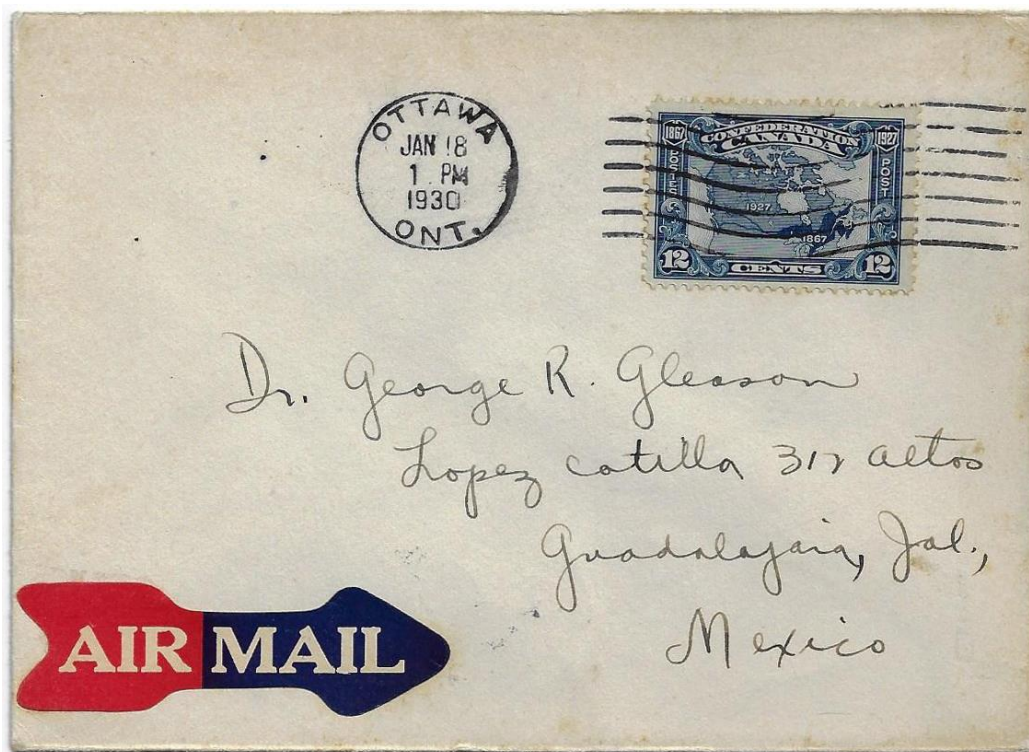 OTTAWA
JAN 18
1 PM
1930
ONT.
1867 CONFEDERATION 1927
CANADA
POSTES POST
1927
1867
12 CENTS 12
Dr. George R. Gleason
Lopez cotilla 312 altos
Guadalajara, Jal.,
Mexico
AIR MAIL